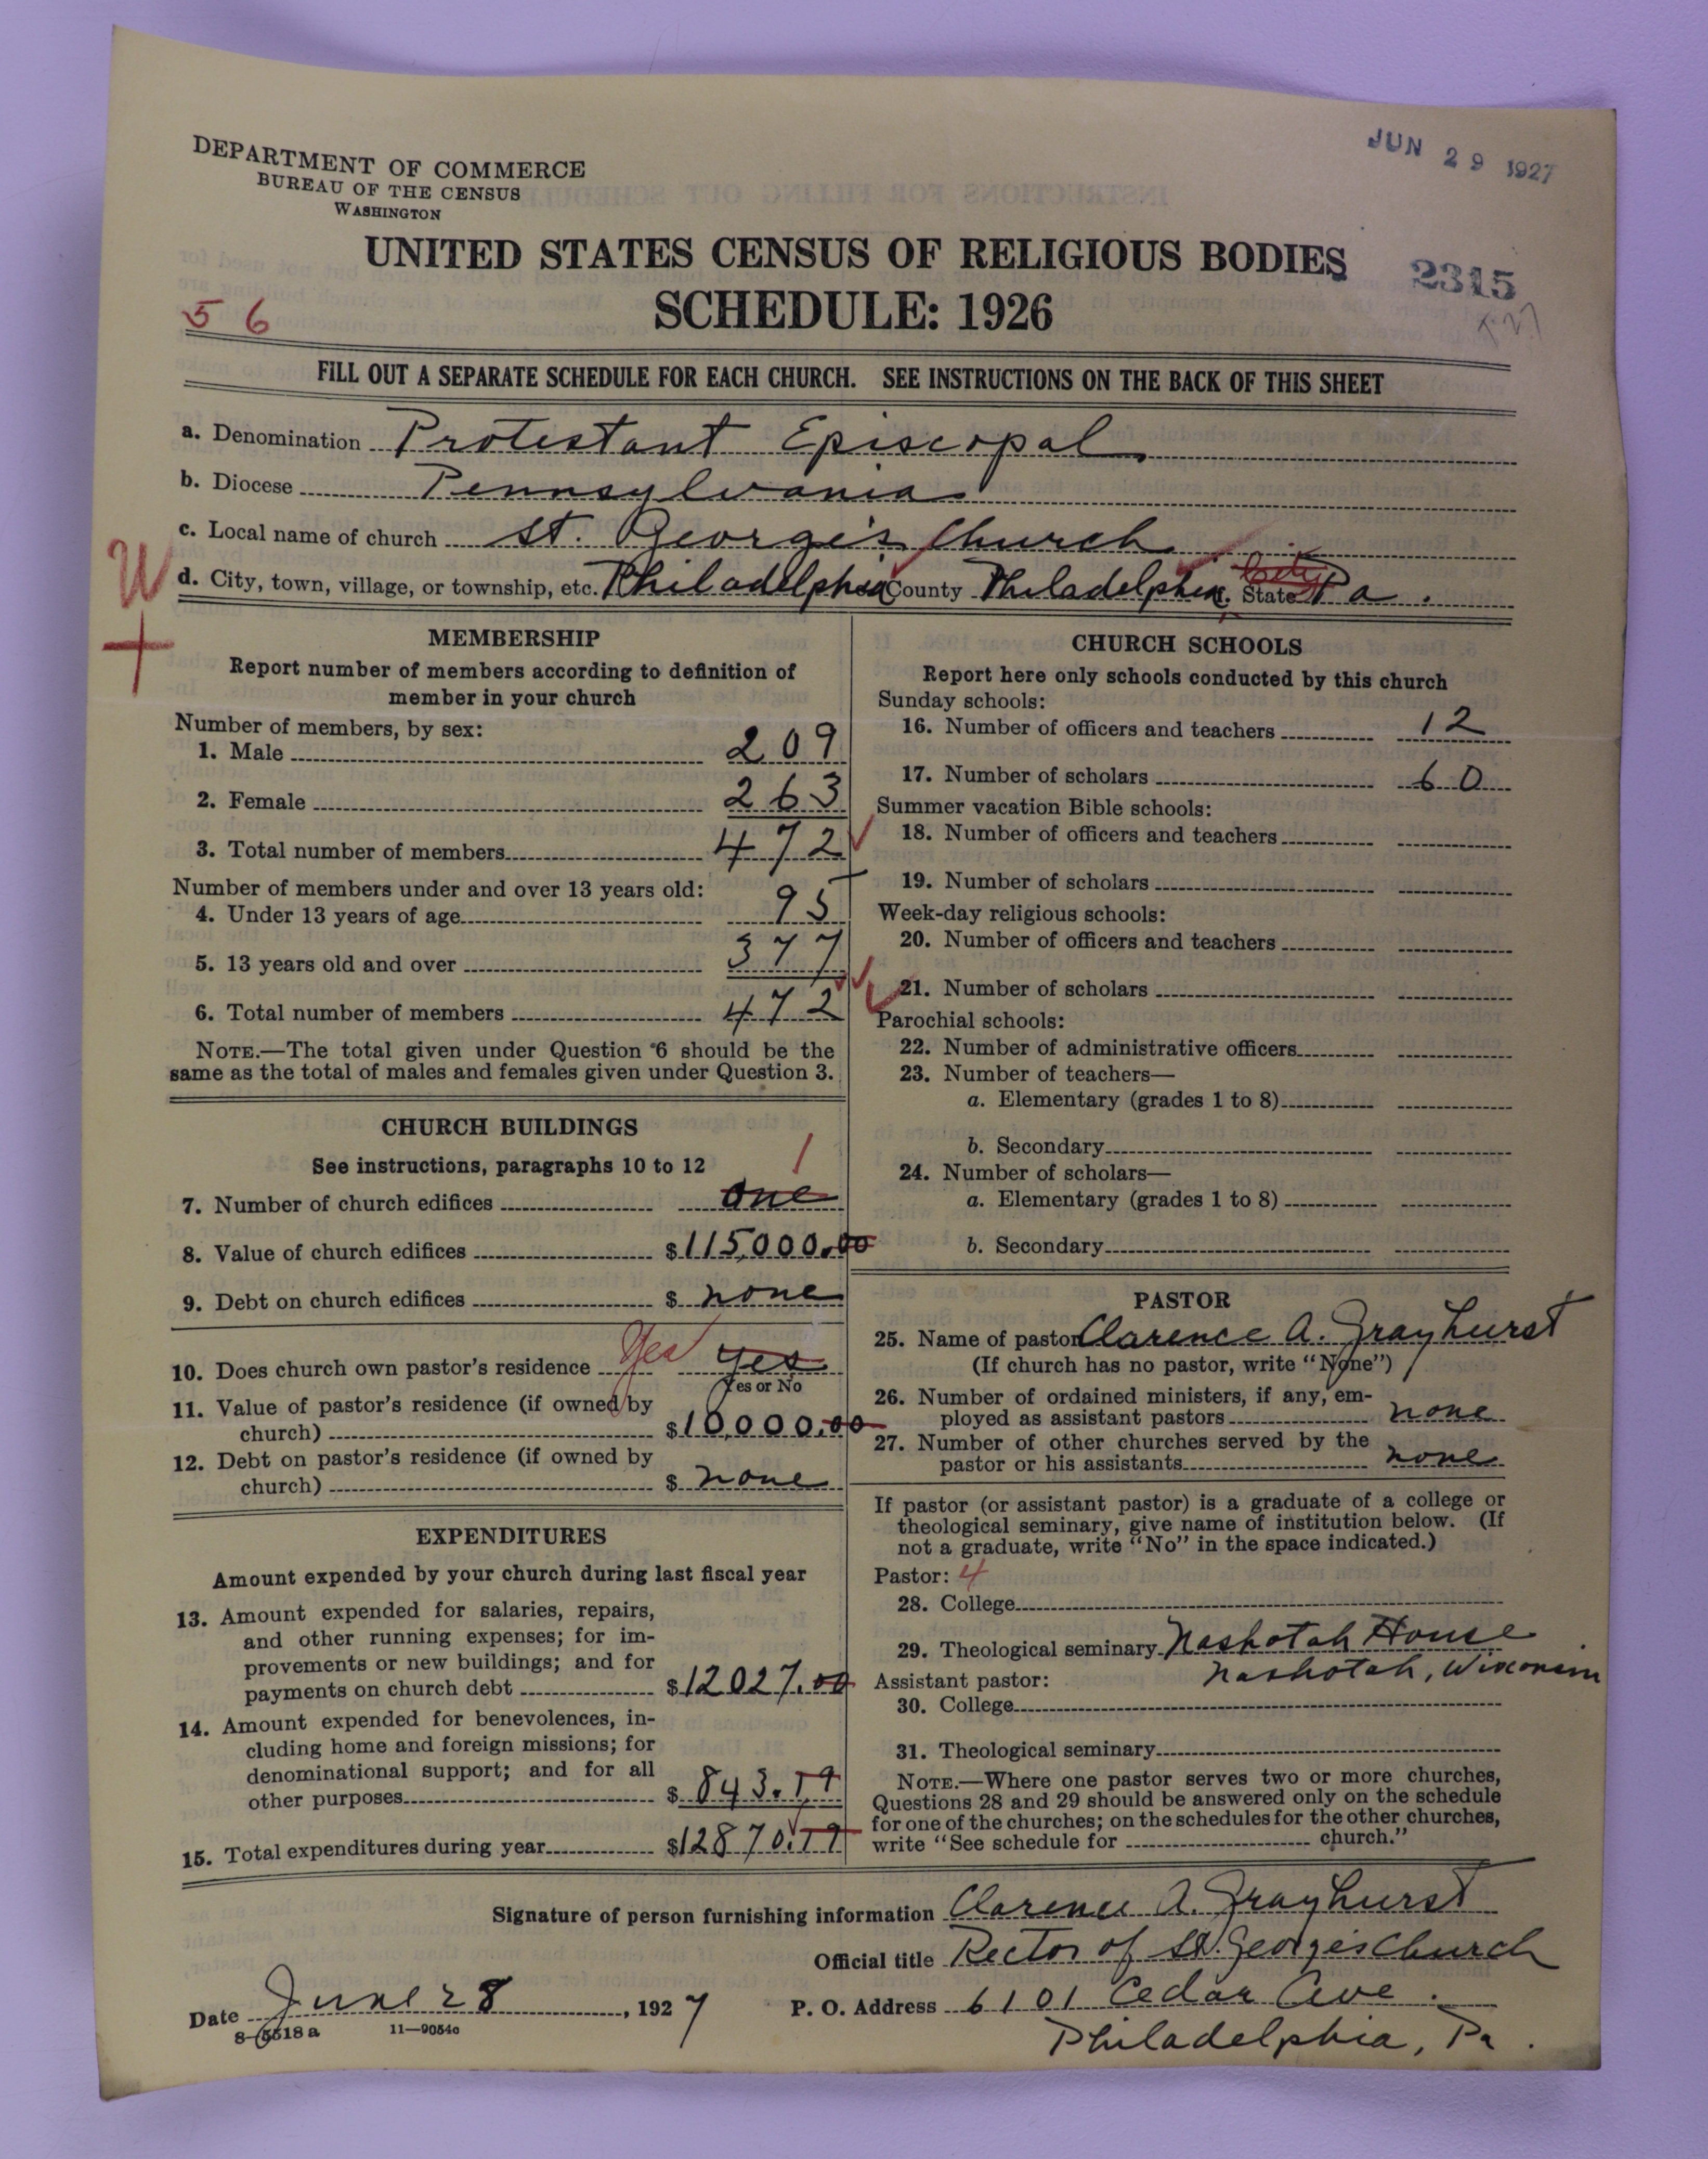 JUN 29 1927
DEPARTMENT OF COMMERCE
BUREAU OF THE CENSUS
WASHINGTON
UNITED STATES CENSUS OF RELIGIOUS BODIES
2315
SCHEDULE: 1926
5 6
FILL OUT A SEPARATE SCHEDULE FOR EACH CHURCH. SEE INSTRUCTIONS ON THE BACK OF THIS SHEET
a. Denomination Protestant Episcopal
b. Diocese Pennsylvania
c. Local name of church St. George's Church
W d. City, town, village, or township, etc. Philadelphia County Philadelphia State Pa.
MEMBERSHIP
Report number of members according to definition of
member in your church
Number of members, by sex:
1. Male 209
2. Female 263
3. Total number of members 472
Number of members under and over 13 years old:
4. Under 13 years of age 95
5. 13 years old and over 377
6. Total number of members 472
NOTE.—The total given under Question 6 should be the
same as the total of males and females given under Question 3.
CHURCH BUILDINGS
See instructions, paragraphs 10 to 12
1
7. Number of church edifices one
8. Value of church edifices $115,000.00
9. Debt on church edifices $ none
10. Does church own pastor's residence Yes yes
Yes or No
11. Value of pastor's residence (if owned by
church) $10,000.00
12. Debt on pastor's residence (if owned by
church) $ none
EXPENDITURES
Amount expended by your church during last fiscal year
13. Amount expended for salaries, repairs,
and other running expenses; for im-
provements or new buildings; and for
payments on church debt $12027.00
14. Amount expended for benevolences, in-
cluding home and foreign missions; for
denominational support; and for all
other purposes $ 843.19
15. Total expenditures during year $12870.19
CHURCH SCHOOLS
Report here only schools conducted by this church
Sunday schools:
16. Number of officers and teachers 12
17. Number of scholars 60
Summer vacation Bible schools:
18. Number of officers and teachers
19. Number of scholars
Week-day religious schools:
20. Number of officers and teachers
21. Number of scholars
Parochial schools:
22. Number of administrative officers
23. Number of teachers—
a. Elementary (grades 1 to 8)
b. Secondary
24. Number of scholars—
a. Elementary (grades 1 to 8)
b. Secondary
PASTOR
25. Name of pastor Clarence A. Grayhurst
(If church has no pastor, write "None")
26. Number of ordained ministers, if any, em-
ployed as assistant pastors none
27. Number of other churches served by the
pastor or his assistants none
If pastor (or assistant pastor) is a graduate of a college or
theological seminary, give name of institution below. (If
not a graduate, write "No" in the space indicated.)
Pastor: 4
28. College
29. Theological seminary Nashotah House
Assistant pastor: Nashotah, Wisconsin
30. College
31. Theological seminary
NOTE.—Where one pastor serves two or more churches,
Questions 28 and 29 should be answered only on the schedule
for one of the churches; on the schedules for the other churches,
write "See schedule for church."
Signature of person furnishing information Clarence A. Grayhurst
Official title Rector of St. George's Church
Date June 28, 1927 P. O. Address 6101 Cedar Ave.
8-5518a 11-9054c
Philadelphia, Pa.